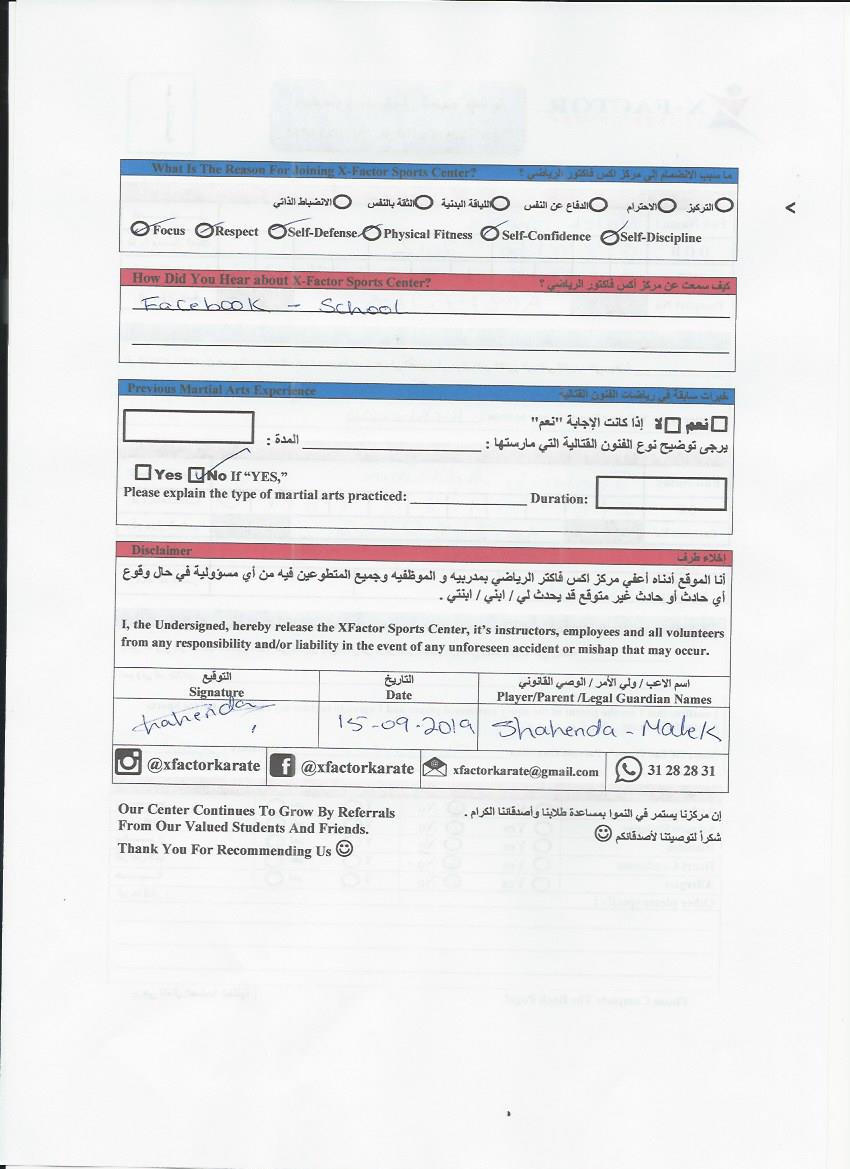 What Is The Reason For Joining X-Factor Sports Center? ما سبب الانضمام إلى مركز اكس فاكتور الرياضي ؟
التركيز الاحترام الدفاع عن النفس اللياقة البدنية الثقة بالنفس الانضباط الذاتي
Focus Respect Self-Defense Physical Fitness Self-Confidence Self-Discipline
How Did You Hear about X-Factor Sports Center? كيف سمعت عن مركز أكس فاكتور الرياضي ؟
Facebook - School
Previous Martial Arts Experience خبرات سابقة في رياضات الفنون القتالية
نعم لا إذا كانت الإجابة "نعم"
يرجى توضيح نوع الفنون القتالية التي مارستها : المدة :
Yes No If “YES,”
Please explain the type of martial arts practiced: Duration:
Disclaimer إخلاء طرف
أنا الموقع أدناه أعفي مركز اكس فاكتر الرياضي بمدربيه و الموظفيه وجميع المتطوعين فيه من أي مسؤولية في حال وقوع
أي حادث أو حادث غير متوقع قد يحدث لي / ابني / ابنتي .
I, the Undersigned, hereby release the XFactor Sports Center, it’s instructors, employees and all volunteers
from any responsibility and/or liability in the event of any unforeseen accident or mishap that may occur.
التوقيع التاريخ اسم الاعب / ولي الأمر / الوصي القانوني
Signature Date Player/Parent /Legal Guardian Names
shahenda 15-09-2019 Shahenda - Malek
@xfactorkarate @xfactorkarate xfactorkarate@gmail.com 31 28 28 31
Our Center Continues To Grow By Referrals
From Our Valued Students And Friends.
Thank You For Recommending Us
إن مركزنا يستمر في النموا بمساعدة طلابنا وأصدقائنا الكرام .
شكراً لتوصيتنا لأصدقائكم